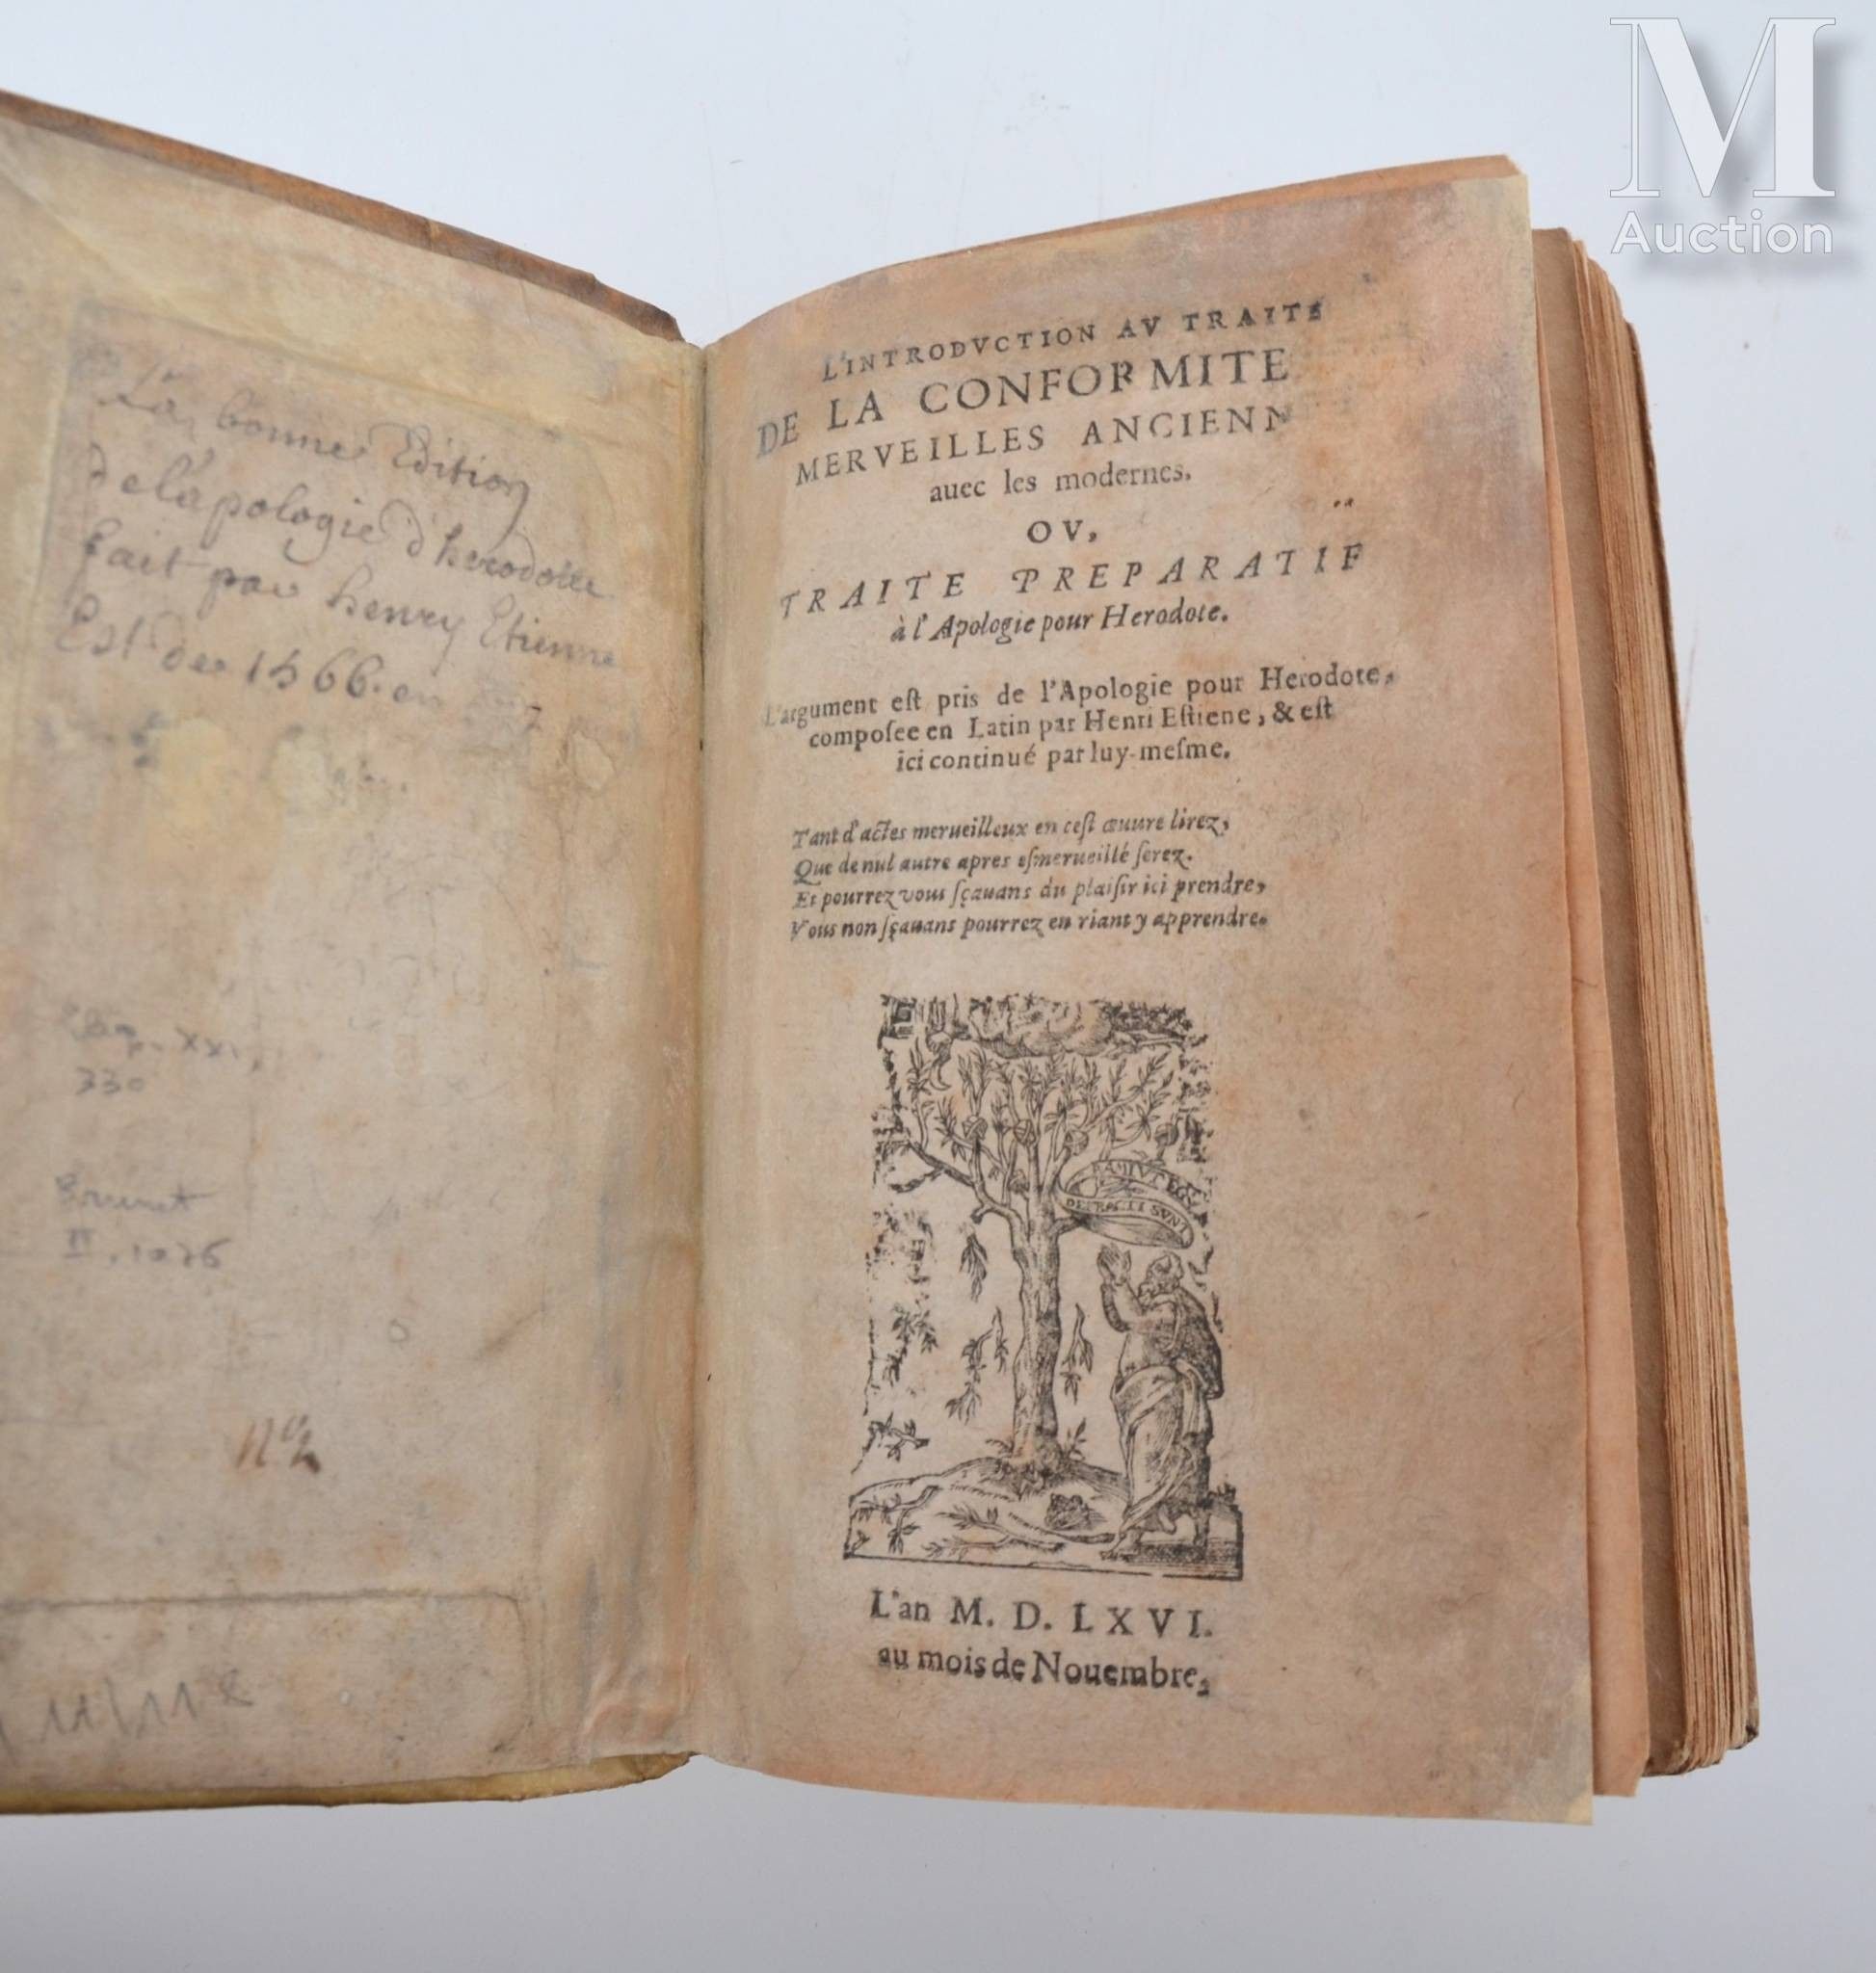 La bonne Edition
de lapologie d'herodote
fait par henry Etienne
Est de 1566. en
330
Brunet
II, 1076
L'INTRODVCTION AV TRAITE
DE LA CONFORMITE
MERVEILLES ANCIENN
auec les modernes.
OV,
TRAITE PREPARATIF
à l'Apologie pour Herodote.
L'argument eſt pris de l'Apologie pour Herodote,
compoſee en Latin par Henri Eſtiene, & eſt
ici continué par luy-meſme.
Tant d'actes merueilleux en ceſt œuure lirez,
Que de nul autre apres eſmerueillé ſerez.
Et pourrez vous ſçauans du plaiſir ici prendre,
Vous non ſçauans pourrez en riant y apprendre.
RAMI VT EGO
DEFRACTI SVNT
L'an M. D. LXVI.
au mois de Nouembre.
M
Auction